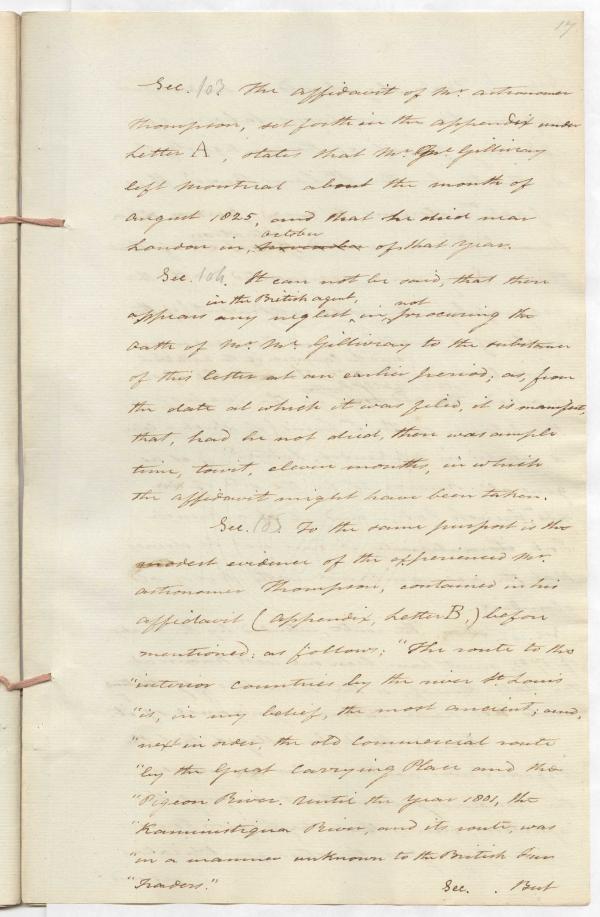 17
Sec. 103. The affidavit of Mr. astronomer
Thompson, set forth in the appendix under
Letter A, states that Mr. McGillivray
left Montreal about the month of
august 1825, and that he died near
October
London in, november of that year.
Sec. 104. It can not be said, that there
in the British agent, not
appears any neglect, in, procuring the
oath of Mr. McGillivray to the substance
of this letter at an earlier period; as, from
the date at which it was filed, it is manifest,
that, had he not died, there was ample
time, towit, eleven months, in which
the affidavit might have been taken.
Sec. 105. To the same purport is the
modest evidence of the experienced Mr.
astronomer Thompson, contained in his
affidavit (appendix, Letter B,) before
mentioned: as follows: "The route to the
"interior countries by the river St. Louis
"is, in my belief, the most ancient; and,
"next in order, the old commercial route
"by the Great Carrying Place and the
"Pigeon River. Until the year 1801, the
"Kaministiqua River, and its route, was
"in a manner unknown to the British Fur
"Traders."
Sec. . But